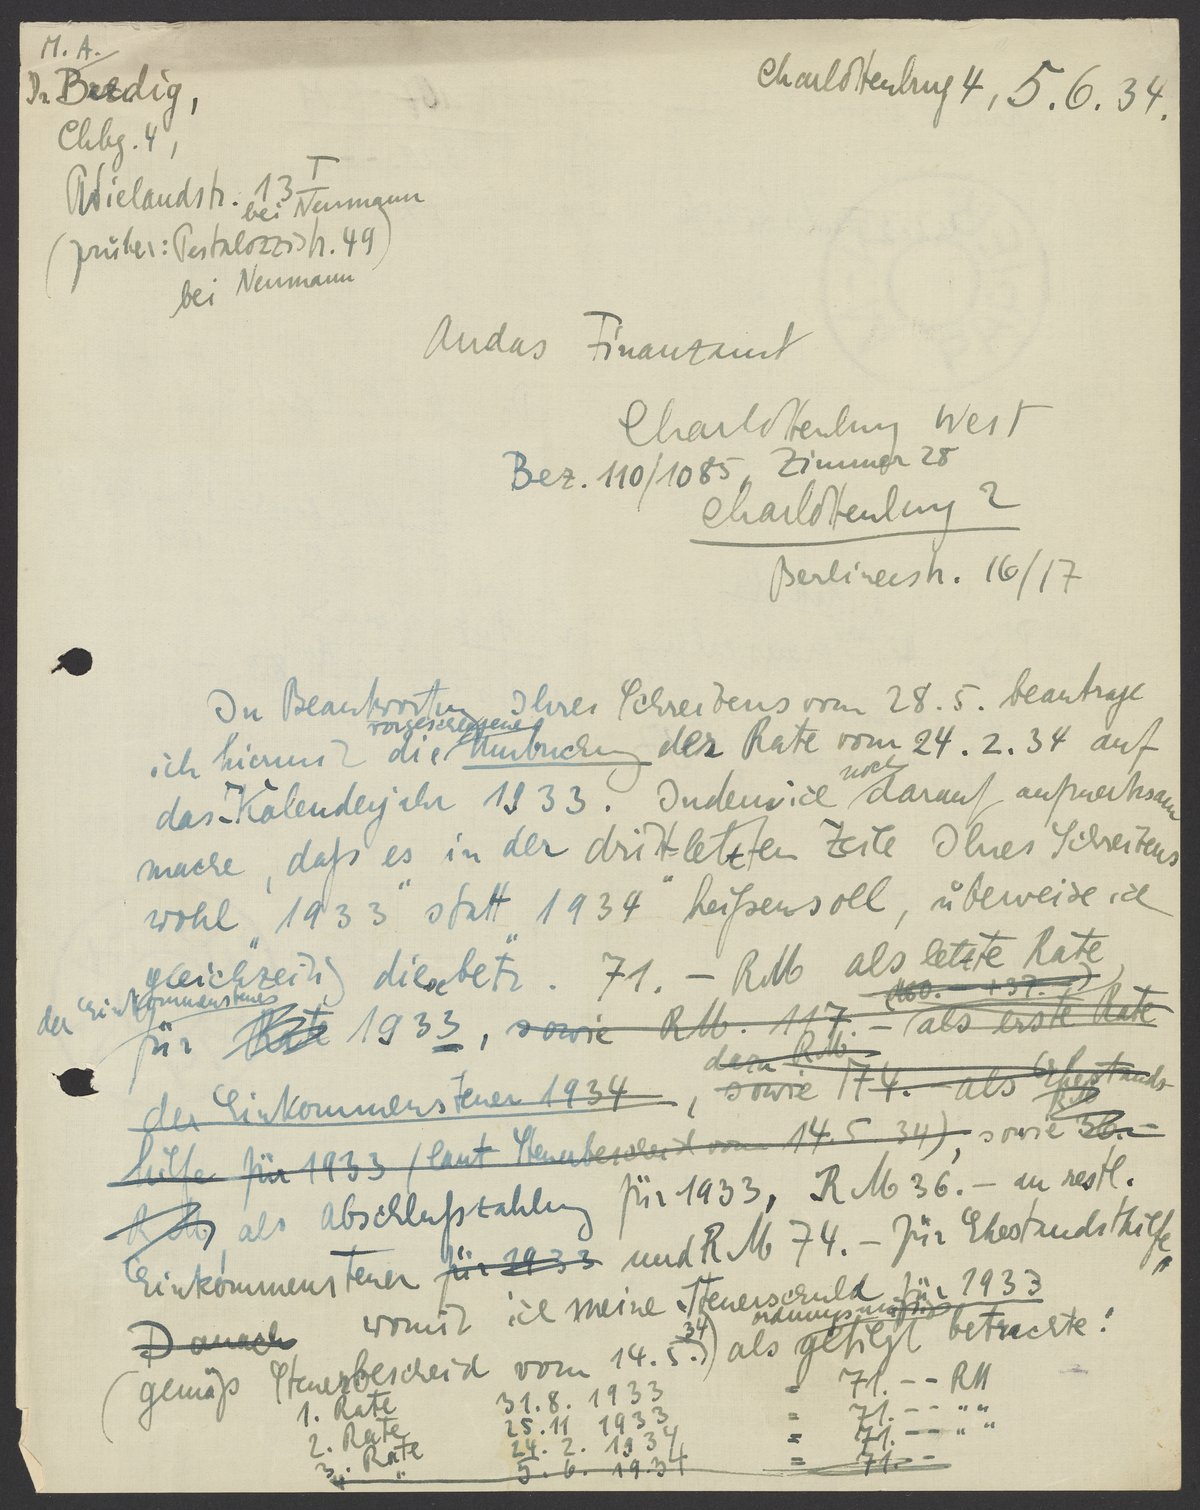 M. A.
Dr Berdig,
Chbg. 4,
Wielandstr. 13 I
bei Neumann
(früher: Pestalozzistr. 49)
bei Neumann
Charlottenburg 4, 5. 6. 34.
An das Finanzamt
Charlottenburg West
Bez. 110/1085, Zimmer 28
Charlottenburg 2
Berlinerstr. 16/17
In Beantwortung Ihres Schreibens vom 28. 5. beantrage
ich hiermit die vorgeschlagene Umbuchung der Rate vom 24. 2. 34 auf
das Kalenderjahr 1933. Indem ich noch darauf aufmerksam
mache, daß es in der drittletzten Zeile Ihres Schreibens
wohl „1933" statt „1934" heißen soll, überweise ich
gleichzeitig die betr. 71.- RM als letzte Rate
der Einkommensteuer
für Rate 1933, sowie RM. 117.- (160.- + 37.-) als erste Rate
der Einkommensteuer 1934, sowie dazu RM 174.- als Ehestands-
hilfe für 1933 (laut Steuerbescheid vom 14. 5. 34), sowie RM 36.-
RM als Abschlußzahlung für 1933, RM 36.- an restl.
Einkommensteuer für 1933 und RM 74.- für Ehestandshilfe,
Danach womit ich meine Steuerschuld für 1933
(gemäß Steuerbescheid vom 14. 5. 34) als ordnungsmäßig getilgt betrachte!
1. Rate 31. 8. 1933 = 71.-- RM
2. Rate 25. 11 1933 = 71.-- " "
3. Rate 24. 2. 1934 = 71.-- " "
4. " 5. 6. 1934 = 71.--